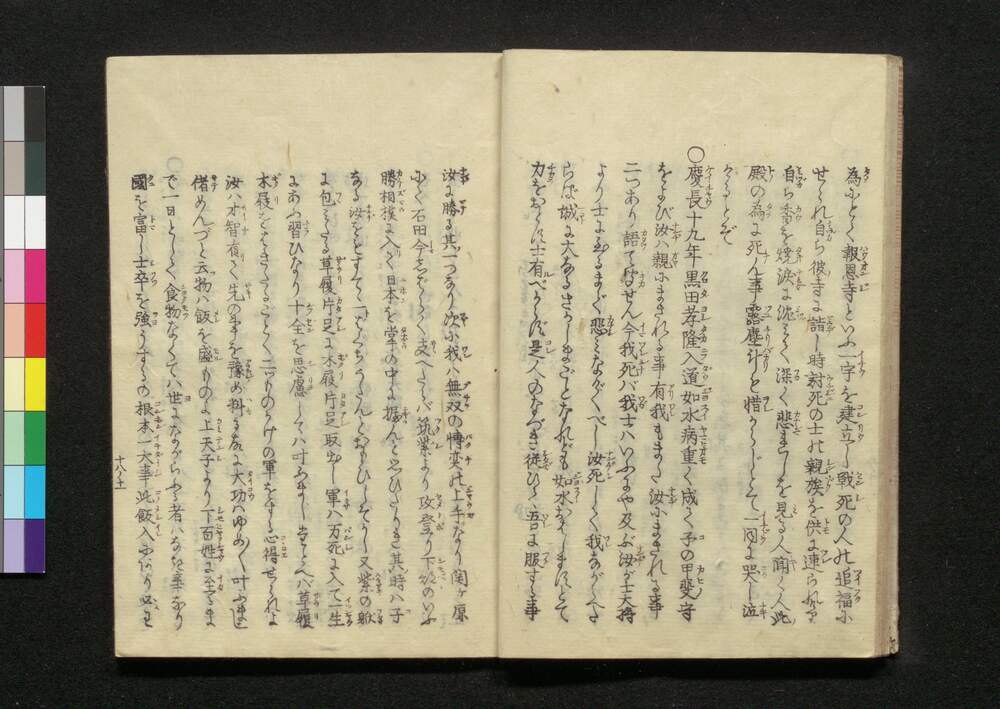 為にとて報恩寺といふ一宇を建立し戦死の人の追福に
せられ自ら彼寺に詣し時討死の士の親族を供に連られ
自ら香を焼涙に沈みて深く悲まれしを見る人聞く人此
殿の為に死ん事露塵計も惜からじとて一同に哭し泣
けるとぞ
○慶長十九年黒田孝隆入道如水病重く成て子の甲斐守
をよび汝は親にまされる事有我もまた汝にまされる事
二つあり語て聞せん今我死バ我士ハいふに及ぶ汝が士大将
より士にいたるまで悲ミなげくべし汝死して我ながらへ
らば城に大なるさわぎまことなれども如水おハしますとて
力をおとす士有べからず是人のなづき従ひ吾に服する事
汝に勝る其一つなり次に我ハ無双の博奕の上手なり関ヶ原
にて石田今しばらく支へたらバ筑紫より攻登り下部のいふ
勝相撲に入て日本を掌の中に握んと思ひたりき其時ハ子
なる汝をもすて一ばくちうたんとおもひしぞかし又紫の袱
に包ミたる草履片足に木履片足取出し軍ハ万死に入て一生
にあふ習ひなり十全を思慮してハ叶ふまじたとへバ草履
木履をはきたることく二つものかけの軍をする心得せられよ
汝ハ才智有て先の事を豫め料る故に大功ハゆめ〱叶ふまじ
偖めんづと云物ハ飯を盛もの也上天子より下百姓に至るま
で一日として食物なくてハ世にながらふる者ハなき事なり
國を富し士卒を強うするの根本一大事此飯入にあり必
十八ノ十一